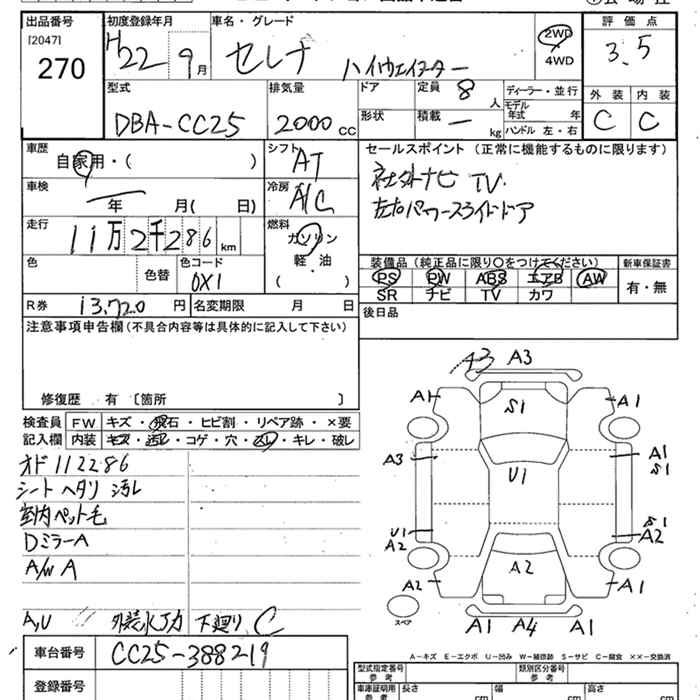 出品番号
[2047]
270
初度登録年月
H22 9月
車名・グレード
セレナ ハイウェイスター
2WD
4WD
評価点
3.5
外装 内装
C C
型式
DBA-CC25
排気量
2000cc
ドア
形状
定員 8人
積載 ー kg
ディーラー・並行
モデル年式 年
ハンドル 左・右
車歴
自家用・( )
シフト
AT
車検
年 月( 日)
冷房
A/C
走行
11万2千286km
燃料
ガソリン
軽・油
( ・ )
色
色替
色コード
0X1
R券 13,720円
名変期限 月 日
セールスポイント(正常に機能するものに限ります)
社外ナビ TV.
左右パワースライドドア
装備品(純正品に限り〇をつけてください)
PS PW ABS エアB AW
SR ナビ TV カワ
新車保証書
有・無
後日品
注意事項申告欄(不具合内容等は具体的に記入して下さい)
修復歴 有〔箇所 〕
検査員記入欄
FW キズ・飛石・ヒビ割・リペア跡・×要
内装 キズ・汚れ・コゲ・穴・スレ・キレ・破レ
オド112286
シートヘタリ 汚レ
室内ペット毛
DミラーA
A/W A
A,U 〃 外装水アカ 下廻りC
車台番号
CC25-388219
登録番号
A3 A3
A1 S1 A1
A3 U1 A1
S1
U1 S1
A2 A2
A2 A2 A1
スペア
A1 A4 A1
A-キズ E-エクボ U-凹み W-補修跡 S-サビ C-腐食 ××-交換済
型式指定番号
参考
類別区分番号
参考
車庫証明用
参考
長さ cm
幅 cm
高さ cm